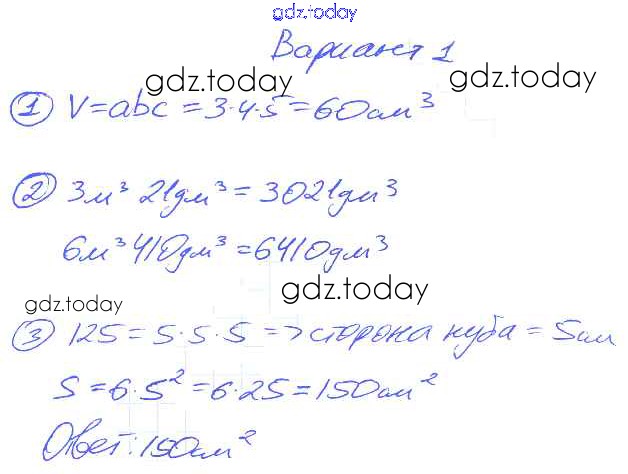 gdz.today
Вариант 1
gdz.today
gdz.today
① V=abc=3·4·5=60см³
② 3м³ 21дм³=3021дм³
6м³ 410дм³=6410дм³
gdz.today
gdz.today
③ 125=5·5·5 => сторона куба = 5см
S=6·5²=6·25=150см²
Ответ: 150см²